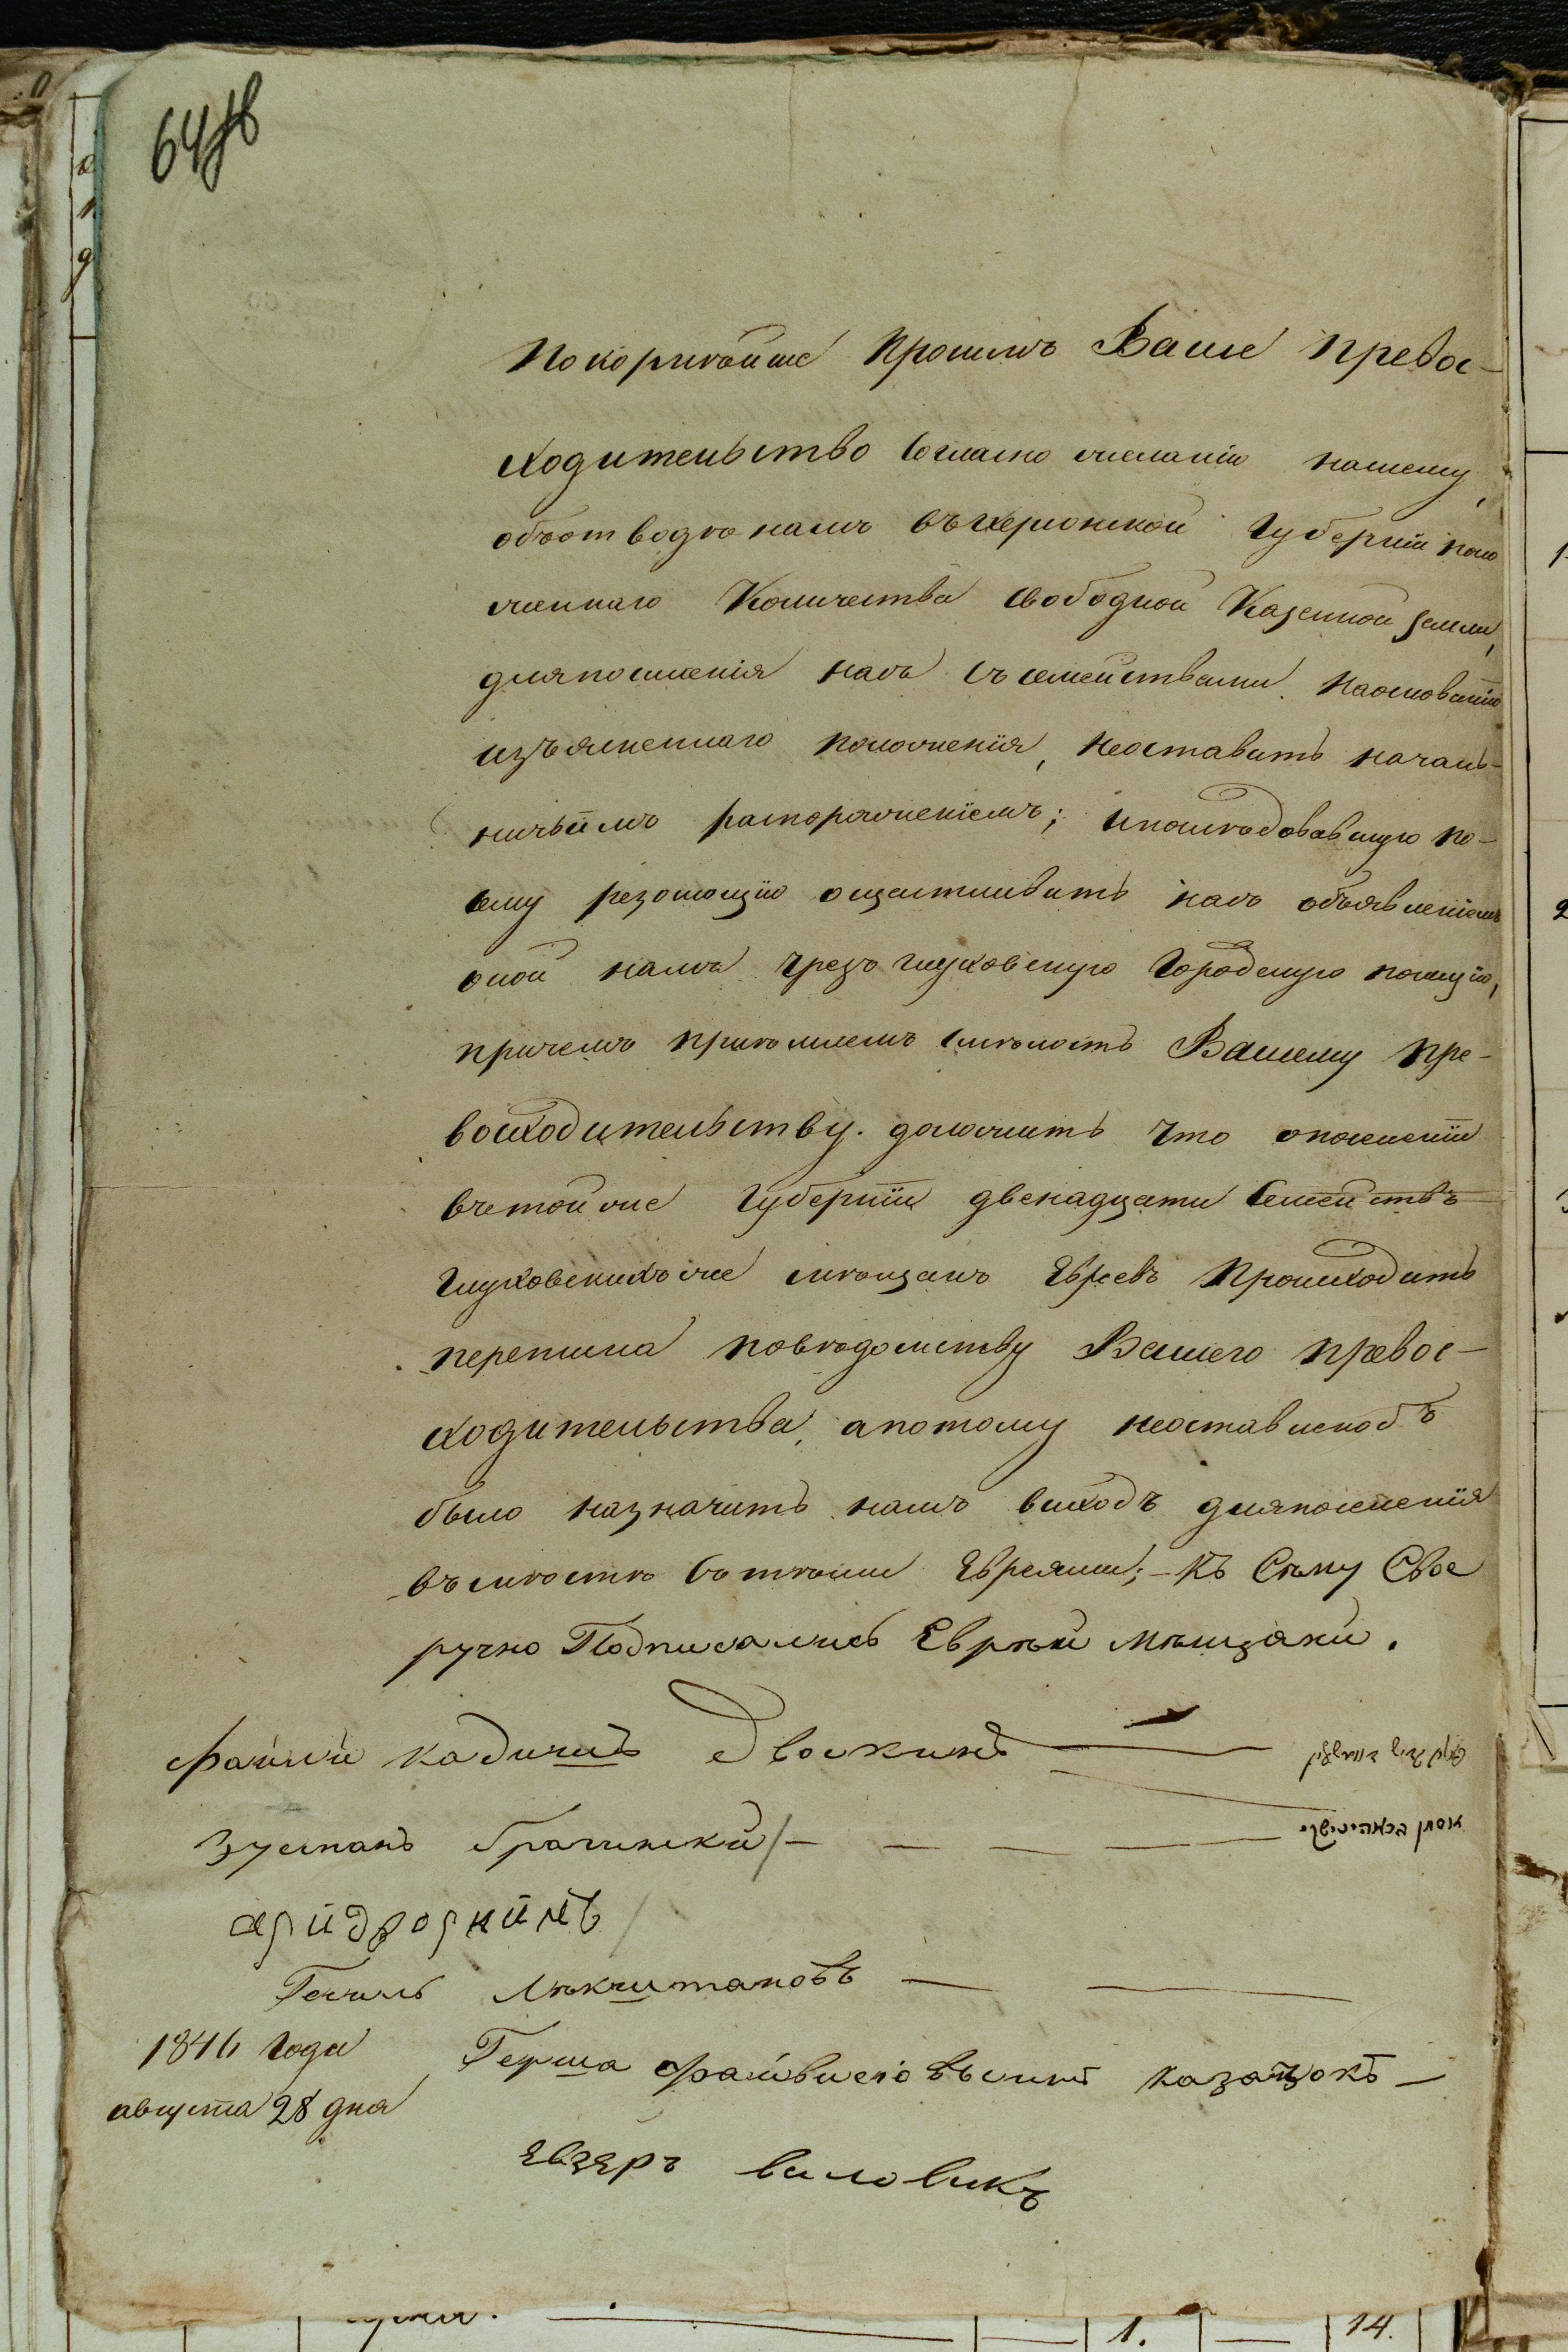 64 об
Покорнѣйше просимъ Ваше превос-
ходительство согласно желанію нашему,
объ отводѣ намъ въ херсонской Губерніи поло
женнаго Количества свободной Казенной земли,
для поселенія насъ съ семействами на основаніи
изъясненнаго положенія, не оставить началь-
ничьимъ распоряженіемъ; и пошлѣдовавшую по-
сему резолюцію ощастливить насъ объявленіемъ
оной намъ чрезъ глуховскую Городскую полицію,
причемъ приѣмлемъ смѣлость Вашему пре-
восходительству доложить что о поселеніи
въ той же Губерніи двенадцати Семействъ
глуховскихъ же мѣщанъ Евреевъ Происходитъ
переписка по вѣдомству Вашего превос-
ходительства, а потому не оставленобъ
было назначить намъ выходъ для поселенія
въ мѣстѣ съ тѣми Евреями; - Къ Сему Свое
ручно Подписались Еврѣи мѣщани.
файли кадишъ Двоскинъ
Зусманъ брагинскй
аридворкинъ
Гечиль
1846 Года
августа 28 дня
Герша файвишовъ сынъ казацокъ
Евзеръ виловикъ
1.
14.